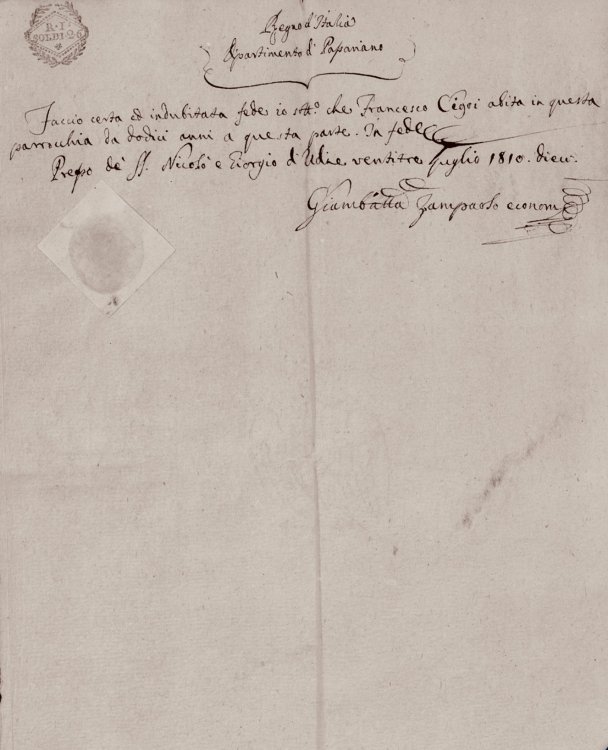 R · I
SOLDI · 26
Regno d'Italia
Dipartimento di Passariano
Faccio certa ed indubitata fede io sotto. che Francesco Cigoi abita in questa
parrocchia da dodici anni a questa parte. In fede
de' SS. Nicolò e Giorgio di Udine ventitre Luglio 1810. dieci.
Giambatta Zampaolo econom